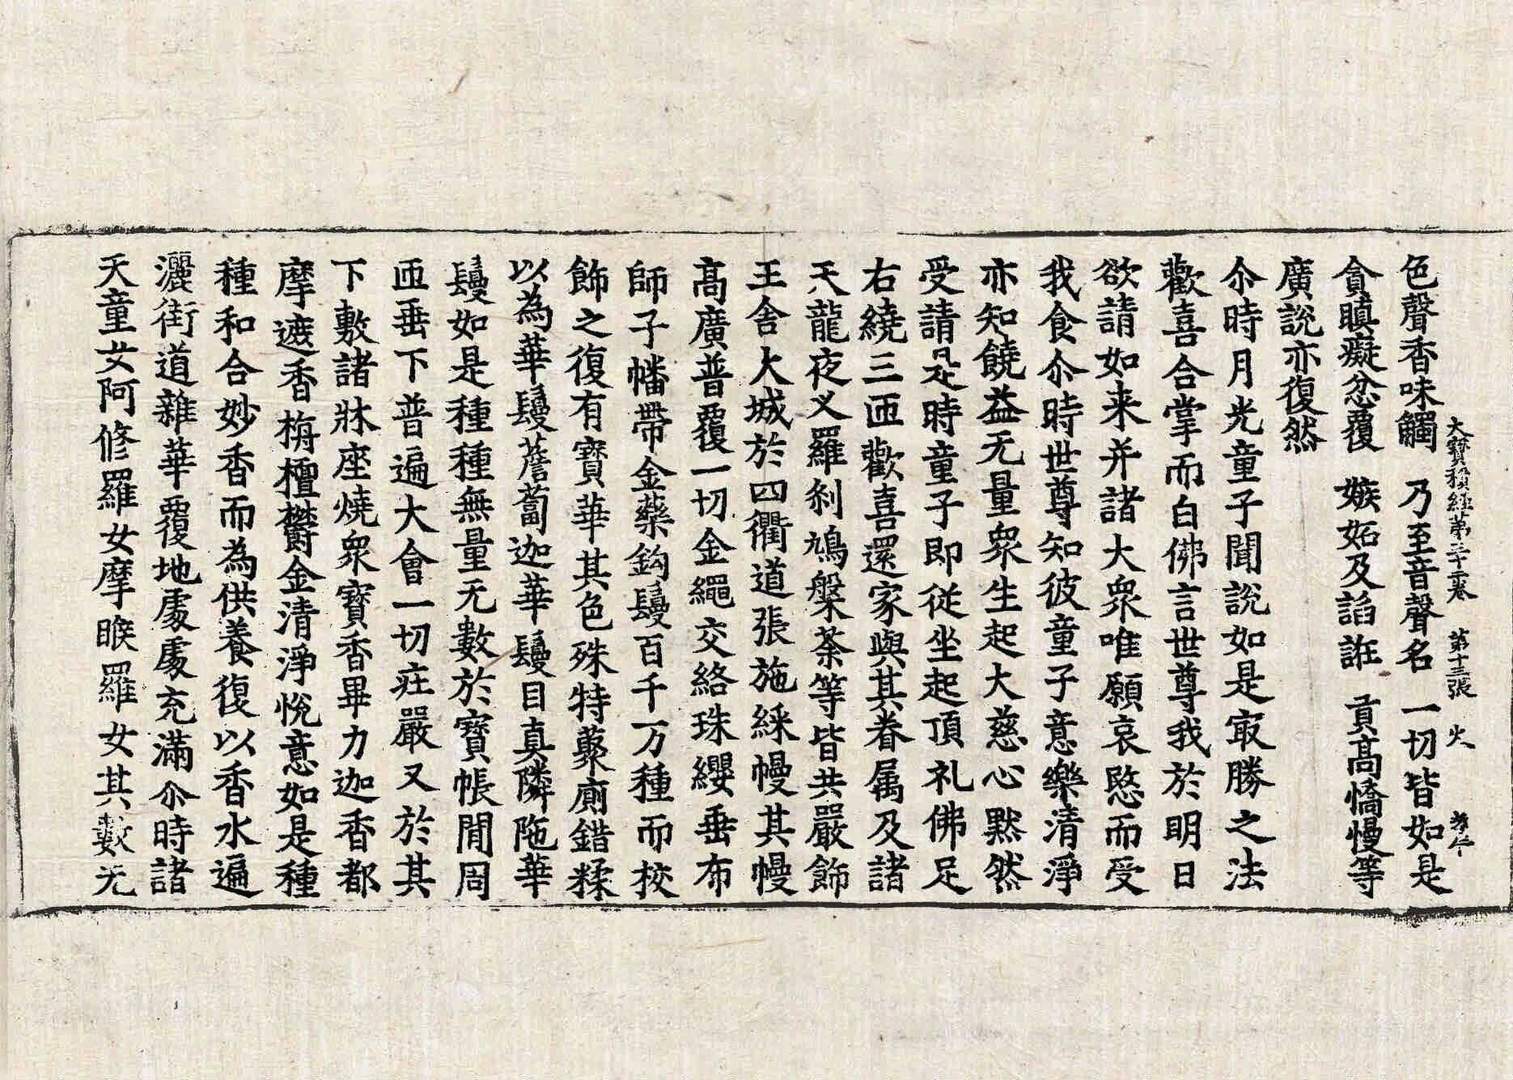 大寶積經第三十卷　第十三張　火
色聲香味觸　乃至音聲名　一切皆如是
貪瞋癡忿覆　嫉妬及諂誑　貢高憍慢等
廣說亦復然
尒時月光童子聞說如是㝡勝之法
歡喜合掌而白佛言世尊我於明日
欲請如来并諸大眾唯願哀愍而受
我食尒時世尊知彼童子意樂清淨
亦知饒益无量眾生起大慈心黙然
受請是時童子即從坐起頂礼佛足
右繞三匝歡喜還家與其眷属及諸
天龍夜叉羅剎鳩槃荼等皆共嚴飾
王舍大城於四衢道張施綵幔其幔
高廣普覆一切金繩交絡珠纓垂布
師子幡帶金藥鈎鬘百千万種而校
飾之復有寶華其色殊特藂廁錯糅
以為華鬘薝蔔迦華鬘目真隣陁華
鬘如是種種無量无數於寶帳閒周
匝垂下普遍大會一切莊嚴又於其
下敷諸牀座燒眾寶香畢力迦香都
摩遮香栴檀欝金清淨悅意如是種
種和合妙香而為供養復以香水遍
灑街道雜華覆地處處充滿尒時諸
天童女阿修羅女摩睺羅女其數无